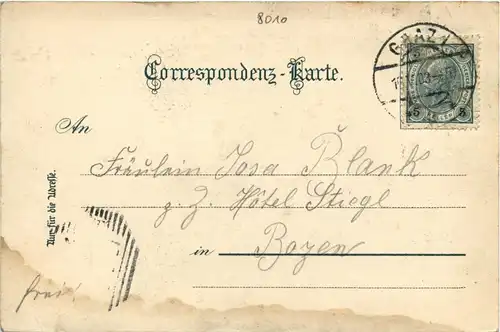 8010
GRAZ
Correspondenz-Karte.
5 5
An
Fräulein Josa Blank
z. Z. Hôtel Stiegl
in Bozen
Nur für die Adresse.
frei!